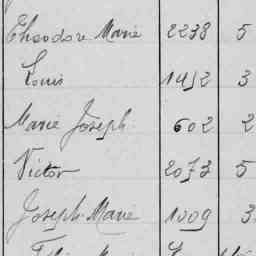 Théodore Marie 2238 5
Louis 1412 3
Marie Joseph 602 2
Victor 2073 5
Joseph-Marie 1009 3